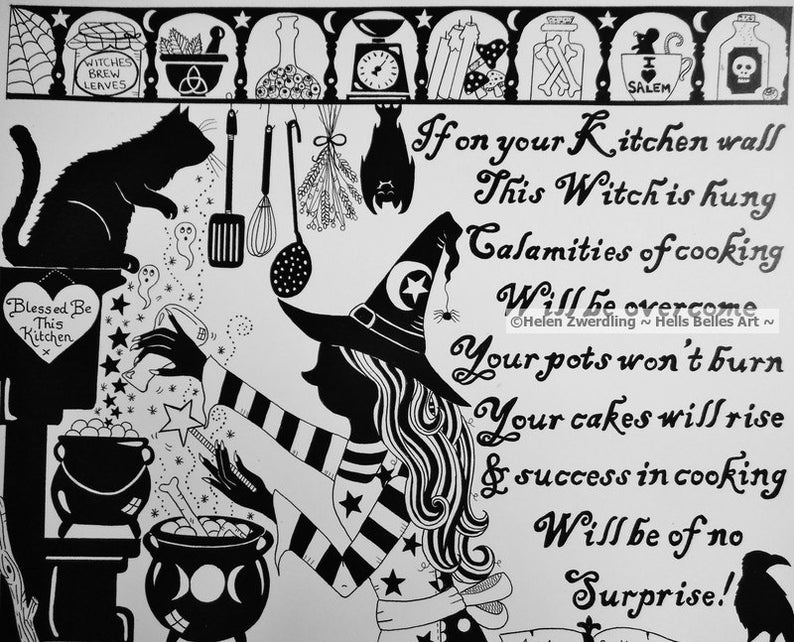 WITCHES
BREW
LEAVES
I ♥
SALEM
If on your Kitchen wall
This Witch is hung
Calamities of cooking
Will be overcome
©Helen Zwerdling ~ Hells Belles Art ~
Your pots won't burn
Your cakes will rise
& success in cooking
Will be of no
Surprise!
Blessed Be
This
Kitchen
x